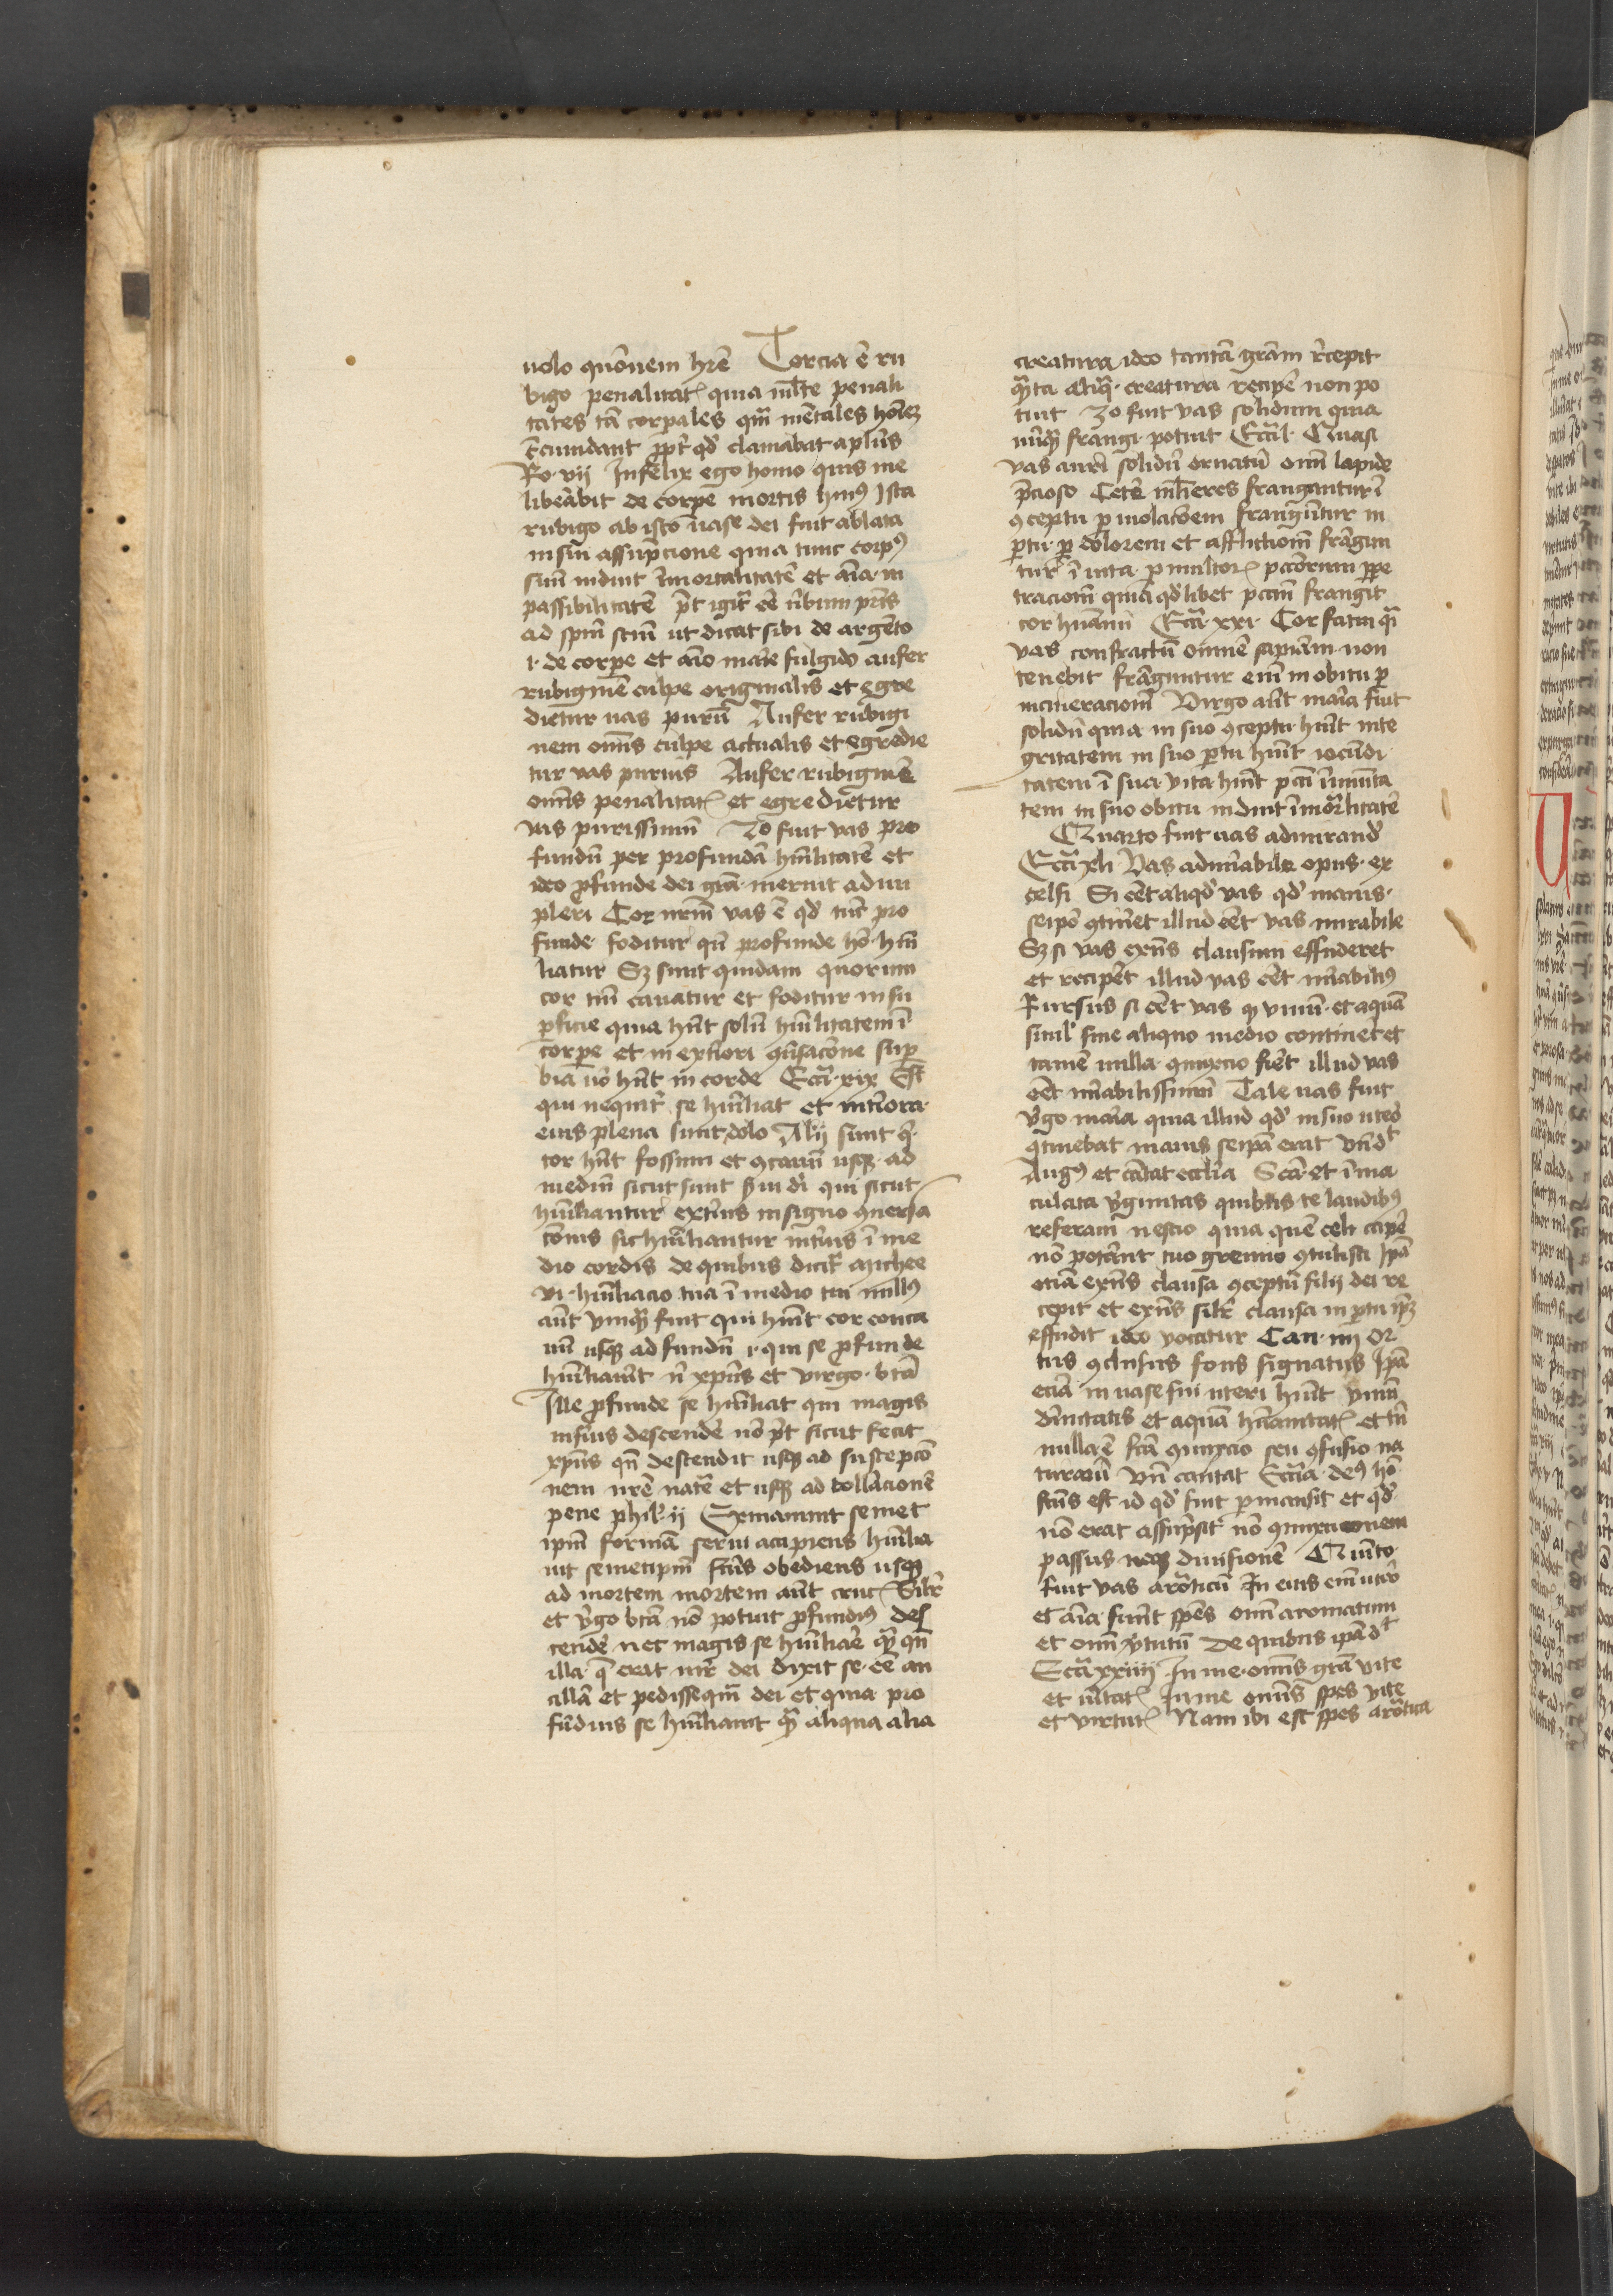 uolo quōnem hr̄e Tercia ē ru
bigo penalitat͛ quia ml̄te penali
tates tā corpales qm̄ mētales hōiēz
c̄cumdant ꝓpt̓ qd̓ clamabat apl̄us
Ro. vij Infelix ego homo quis me
libeābit de corpe mortis huiꝰ Ista
rubigo ab isto uase dei fuit ablata
in sua assūpcione quia tunc corpꝰ
suū induit īmortalitatē et aīa in
passibilitatē pt̄ igit̓ eē ūbum pr̄is
ad spm̄ scm̄ ut dicat sibi de argēto
i. de corpe et aīo marie fulgido aufer
rubiginē culpe originalis et egre
dietur uas purū Aufer rubigi
nem om̄is culpe actualis et egredie
tur uas purius Aufer rubiginē
om̄is penalitat͛ et egredietur
vas purissimū 2o fuit vas pro
fundū per profundā hūilitatē et
ideo ꝓfunde dei grā meruit adim
pleri Cor nr̄m vas ē qd̓ tūc pro
funde foditur qn̄ profunde hō hūi
liatur Sꝫ sunt quidam quorum
cor tm̄ cauatur et foditur in su
ꝑficie quia hn̄t solū hūilitatem ī
corpe et in ext̓iori ꝯūsacōne suꝑ
biā uō hn̄t in corde Ecc̄i xix Est
qui nequit̓ se hūiliat et int̓iora
eius plena sunt dolo Alij sunt q̓
cor hn̄t fossum et ꝯcauū usqꝫ ad
mediū sicut sunt s̓ui di qui sicut
hūiliantur ext̓ius in signo ꝯuersa
cōnis sic hūiliantur int̓ius ī me
dio cordis de quibus dicit̓ Michee
vi. hūiliacio tua ī medio tui nullꝰ
aūt vnqm̄ fuit qui hūit cor conca
uū usqꝫ ad fundū i. qui se ꝓfunde
hūiliauit n̄ xp̄us et virgo b̄ta
Ille ꝓfunde se hūiliat qui magis
inferius descende nō pt̄ sicut fecit
xp̄us qn̄ descendit usqꝫ ad suscepcō
nem nr̄e nat̓e et usqꝫ ad tollacionē
pene phil̓. ij Exinaniuit semet
ipm̄ formā serui accipiens hūilia
uit semetipm̄ fc̄us obediens usqꝫ
ad mortem mortem aūt cruc͛ Silr̄
et v̓go b̄ta nō potuit ꝓfundiꝰ des
cende nec magis se hūiliāe qm̄ qn̄
illa q̄ erat mr̄ dei dixit se eē an
cillā et pedissequā dei et quia pro
fūdius se hūiliauit qm̄ aliqua alia
creatura ideo tantā grām r̄cepit
qm̄ta aliq̄ creatura recipe non po
tuit 3o fuit vas solidum quia
nūqm̄ frangi potuit Ecc̄i l. Quasi
vas auri solidū ornatū om̄i lapide
p̄cioso Cet̓e ml̄ieres franguntur ī
ꝯceptu ꝑ uiolacōem franguntur in
ꝑtu ꝑ dolorem et afflictionē frāgun
tur ī uita ꝑ multor͛ pccōrum ꝑpe
tracionē quia qd̓libet pccm̄ frangit
cor hūanū Ecc̄i xxi. Cor fatui qͣ
vas confractū omnē sapīam non
tenebit frāguntur enī in obitu ꝑ
incineracionē Virgo aūt maria fuit
solidū quia in suo ꝯceptu hūit inte
gritatem in suo ꝑtu hūit iocūdi
tatem ī sua vita hūit pccī īmuīta
tem in suo obitu induit īmortalitatē
Quarto fuit uas admirand̓
Ecc̄i xliij Vas admīabile opus ex
celsi Si eēt aliqd̓ vas qd̓ maius
seipō ꝯtineret illud eēt vas mirabile
Sꝫ si vas exn̄s clausum effuderet
et recipēt illud vas eēt mīabiliꝰ
Rursus si eēt vas qꝫ vinū et aquā
simul sine aliquo medio contineret et
tamē nulla ꝯmixtio fieret illud vas
eēt mīabilissimū Tale uas fuit
v̓go maria quia illud qd̓ in suo uteo
ꝯtinebat maius seipsā erat vn̄ dt
Augꝰ et cātat ecclīa Scā et īma
culata v̓ginitas quibus te laudibꝰ
referam nescio quia quē celi cape
nō potāunt tuo gremio ꝯtulisti Ipā
eciā exn̄s clausa ꝯceptū filij dei re
cepit et exn̄s silr̄ clausa in ꝑtu ip̄m
effudit ideo vocatur Can. iiij Or
tus ꝯclusus fons signatus Ipā
eciā in uase sui uteri hūit vinū
dīnitatis et aquā hūanitat͛ et tn̄
nulla ē fcā ꝯmixcio seu ꝯfusio na
turarū vn̄ cantat Ecc̄ia deꝰ hō
fc̄us est id qd̓ fuit ꝑmansit et qd̓
nō erat assūpsit nō ꝯmixtionem
passus neqꝫ diuisionē Quīto
fuit vas arōticū In eius enī utero
et aīa fuerūt spēs om̄i aromatum
et om̄i v̓tutū De quibus ipā dt
Ecc̄i xxiiij In me om̄is grā vite
et ūitat͛ In me om̄is spes vite
et virtut͛ Nam ibi est spēs arōtica